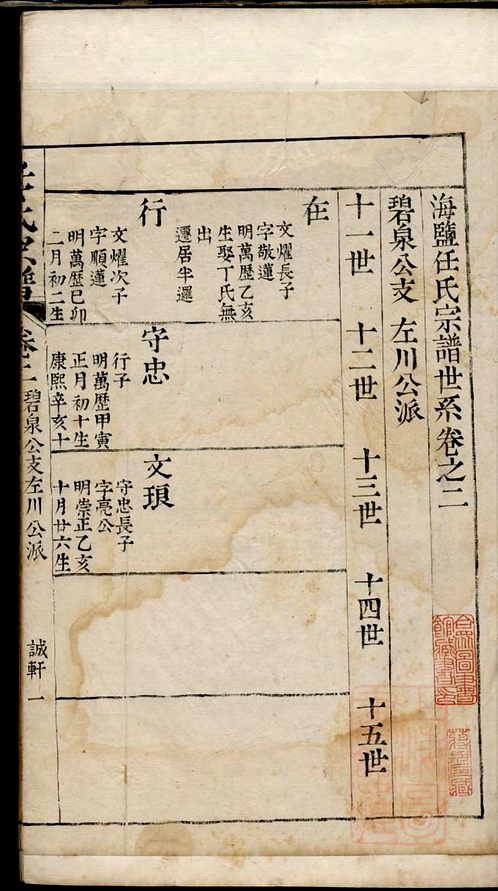 海鹽任氏宗譜世系卷之二
碧泉公支 左川公派
十一世 十二世 十三世 十四世 十五世
在
文燿長子
字敬蓮
明萬歷乙亥
生娶丁氏無
出
遷居半邏
行
文燿次子
字順蓮
明萬歷巳卯
二月初二生
守忠
行子
明萬歷甲寅
正月初十生
康熙辛亥十
文琅
守忠長子
字亮公
明崇正乙亥
十月廿六生
任氏宗譜 卷二 碧泉公支左川公派 誠軒 一